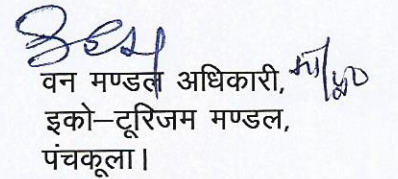 वन मण्डल अधिकारी,
इको–टूरिजम मण्डल,
पंचकूला।